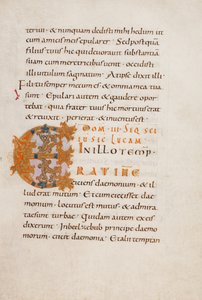 tervit · & numquam dedisti mihi hedum ut
cum amicis meis epularer · Sed postquā
filius tuus hic qui devoravit substantiā
suam cum meretricibus venit · occidisti
illi vitulum saginatum · At ipse dixit illi ·
Fili tu semper mecum es · & omnia mea tua
sunt · Epulari autem & gaudere opor
tebat · quia frater tuus hic mortuus erat
& revixit · perierat & inventus est ·
DOM · III · SCI
EV SEC LUCAM ·
IN ILLO TEMP ·
ERAT IHS
eiciens daemonium · & il
lud erat mutum · Et cum eiecisset dae
monium · locutus est mutus · & admira
tae sunt turbae · Quidam autem ex eis
dixerunt · In beelzebub principe daemo
niorum · eiecit daemonia · Et alii temptan